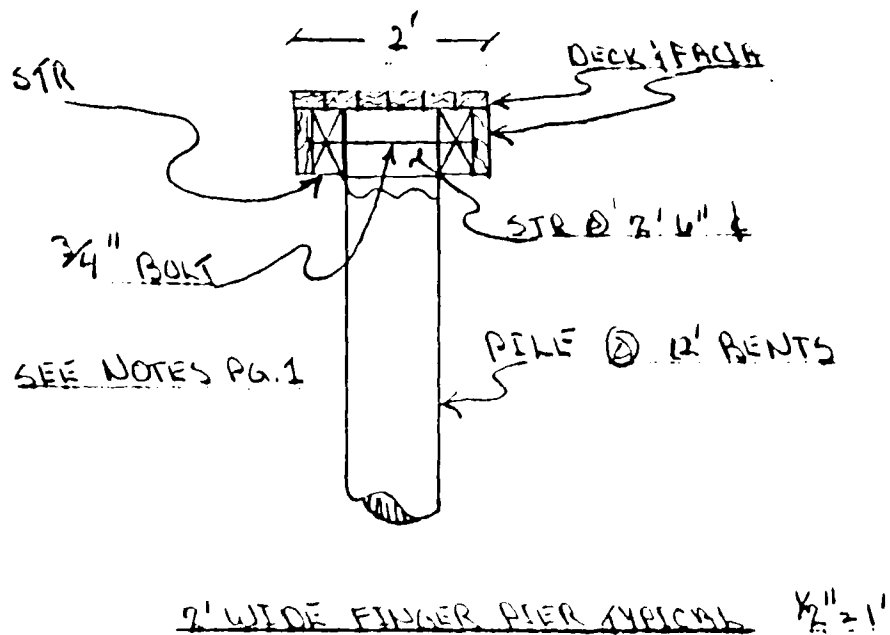 2'
STR
DECK & FACIA
3/4" BOLT
STR @ 2' 6" ¢
SEE NOTES PG.1
PILE @ 12' BENTS
2' WIDE FINGER PIER TYPICAL 1/2" = 1'